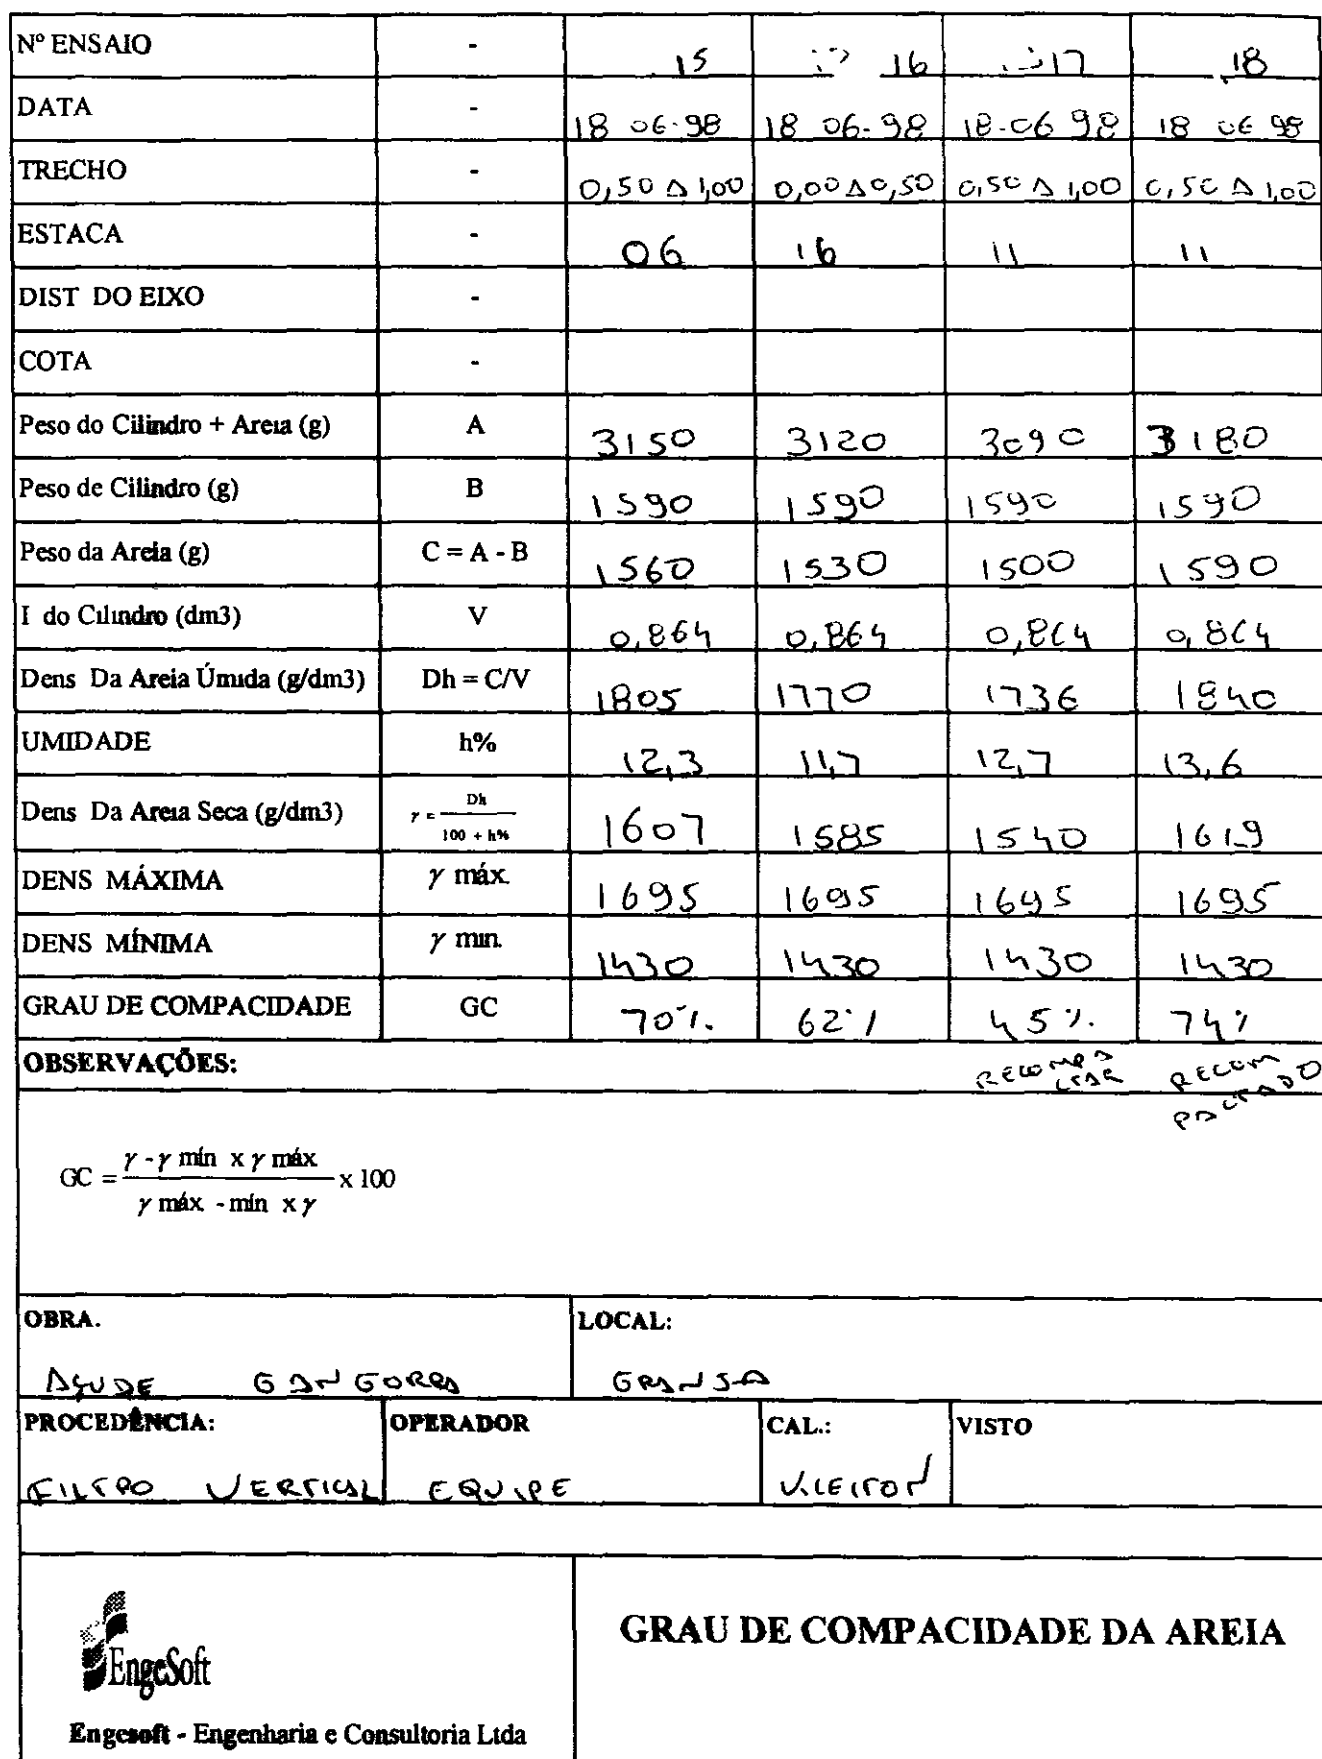 Nº ENSAIO - 15 16 17 18
DATA - 18 06.98 18 06.98 18.06 98 18 06 98
TRECHO - 0,50 A 1,00 0,00 A 0,50 0,50 A 1,00 0,50 A 1,00
ESTACA - 06 16 11 11
DIST DO EIXO -
COTA -
Peso do Cilindro + Areia (g) A 3150 3120 3090 3180
Peso de Cilindro (g) B 1590 1590 1590 1590
Peso da Areia (g) C = A - B 1560 1530 1500 1590
I do Cilindro (dm3) V 0,864 0,864 0,864 0,864
Dens Da Areia Úmida (g/dm3) Dh = C/V 1805 1770 1736 1840
UMIDADE h% 12,3 11,7 12,7 13,6
Dens Da Areia Seca (g/dm3) γ = Dh / 100 + h% 1607 1585 1540 1619
DENS MÁXIMA γ máx. 1695 1695 1695 1695
DENS MÍNIMA γ min. 1430 1430 1430 1430
GRAU DE COMPACIDADE GC 70% 62% 45% 74%
OBSERVAÇÕES: RECOMPACTAR RECOM
PACTADO
GC = γ - γ mín x γ máx / γ máx - mín x γ x 100
OBRA. LOCAL:
AÇUDE GANGORRA GRANJA
PROCEDÊNCIA: OPERADOR CAL.: VISTO
FILTRO VERTICAL EQUIPE V.LEITON
EngeSoft
GRAU DE COMPACIDADE DA AREIA
Engesoft - Engenharia e Consultoria Ltda